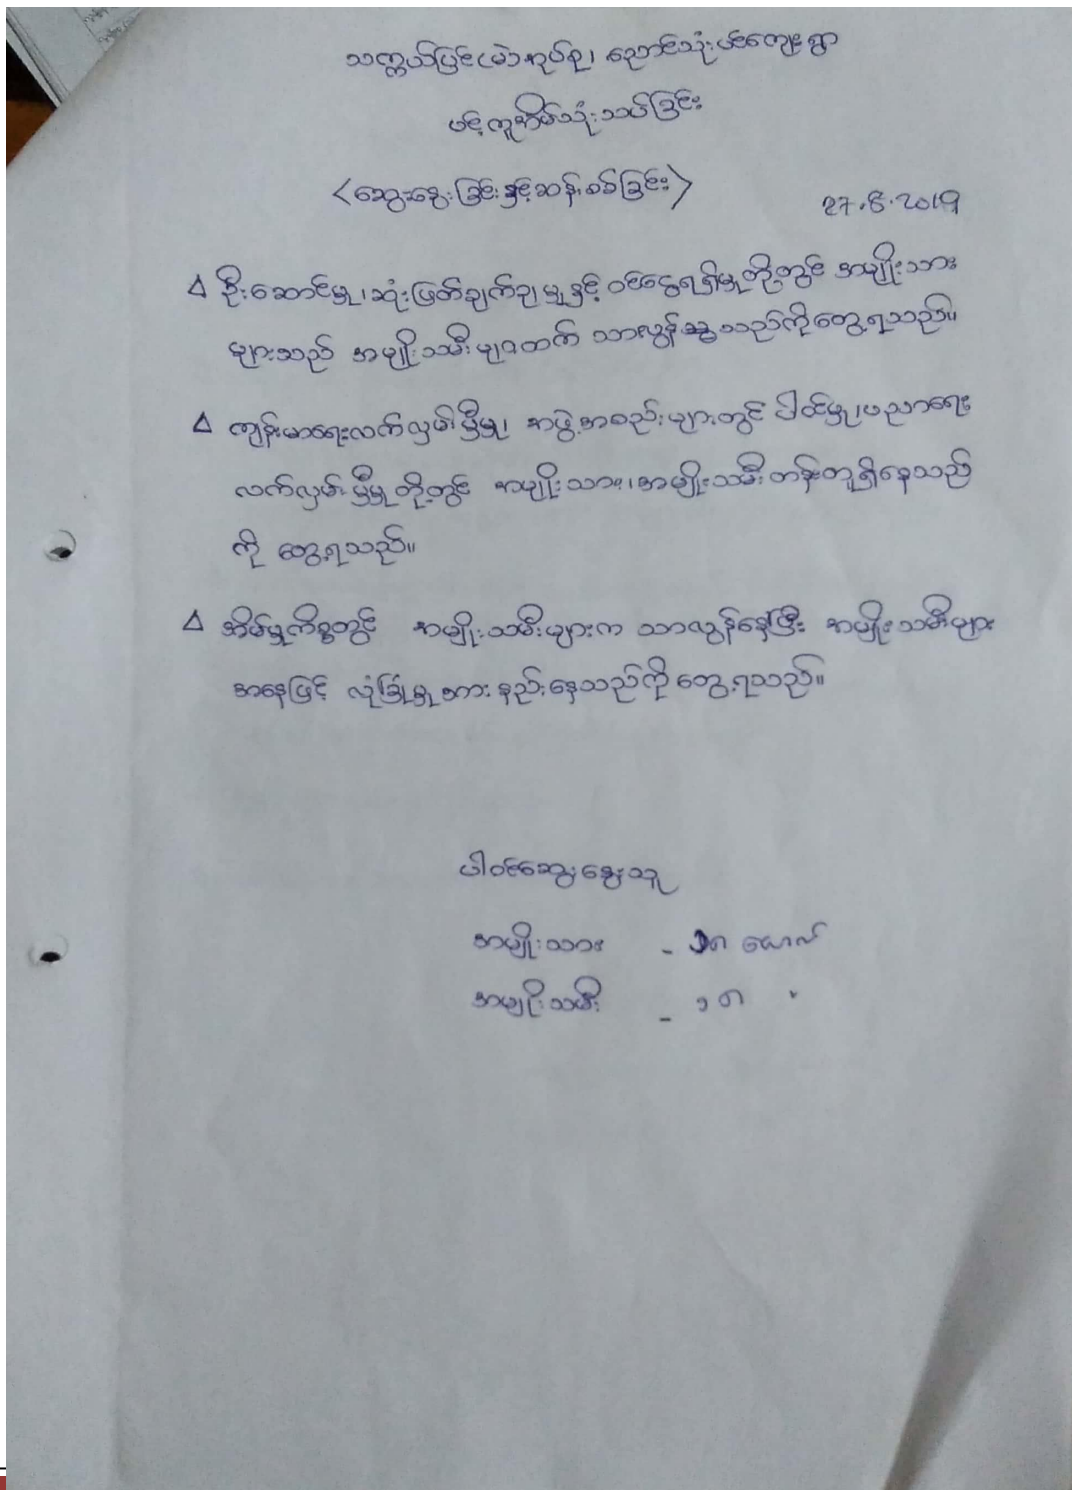 သက္ကယ်ပြင်(မဲ)အုပ်စု၊ ညောင်သုံးပင်ကျေးရွာ
ပင့်ကူအိမ်သုံးသပ်ခြင်း
<ဆွေးနွေးခြင်းနှင့်ဆန်းစစ်ခြင်း>
27.8.2019
Δ ဦးဆောင်မှု၊ ဆုံးဖြတ်ချက်ချမှုနှင့် ဝင်ငွေရရှိမှုတို့တွင် အမျိုးသား
များသည် အမျိုးသမီးများထက် သာလွန်နေသည်ကိုတွေ့ရသည်။
Δ ကျန်းမာရေးလက်လှမ်းမှီမှု၊ အဖွဲ့အစည်းများတွင် ပါဝင်မှု၊ ပညာရေး
လက်လှမ်းမှီမှုတို့တွင် အမျိုးသား၊ အမျိုးသမီးတန်းတူရှိနေသည်
ကို တွေ့ရသည်။
Δ အိမ်မှုကိစ္စတွင် အမျိုးသမီးများက သာလွန်နေပြီး အမျိုးသမီးများ
အနေဖြင့် လုံခြုံမှုအားနည်းနေသည်ကို တွေ့ရသည်။
ပါဝင်ဆွေးနွေးသူ
အမျိုးသား - ယောက်
အမျိုးသမီး - "